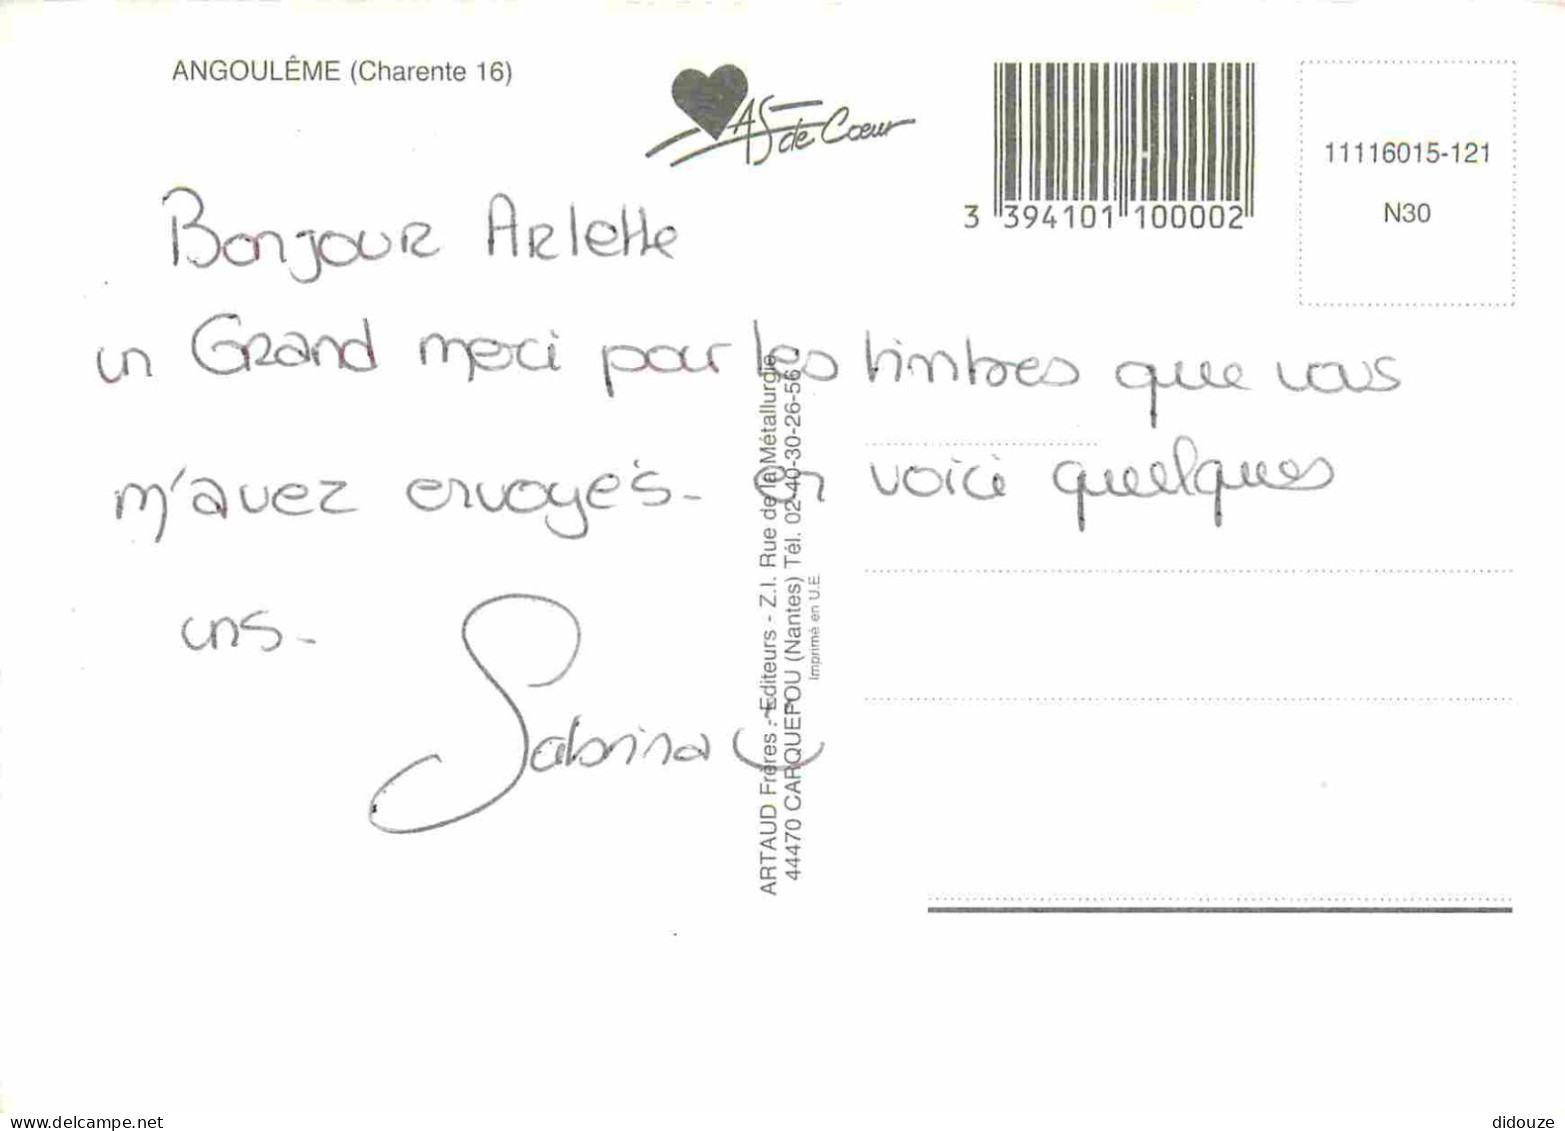 ANGOULÊME (Charente 16)
AS de Cœur
3 394101 100002
11116015-121
N30
Bonjour Arlette
un Grand merci pour les timbres que vous
m'avez envoyés - en voici quelques
uns -
Sabrina
ARTAUD Frères - Editeurs - Z.I. Rue de la Métallurgie
44470 CARQUEFOU (Nantes) Tél. 02-40-30-26-56
Imprimé en U.E.
delcampe.net
didouze